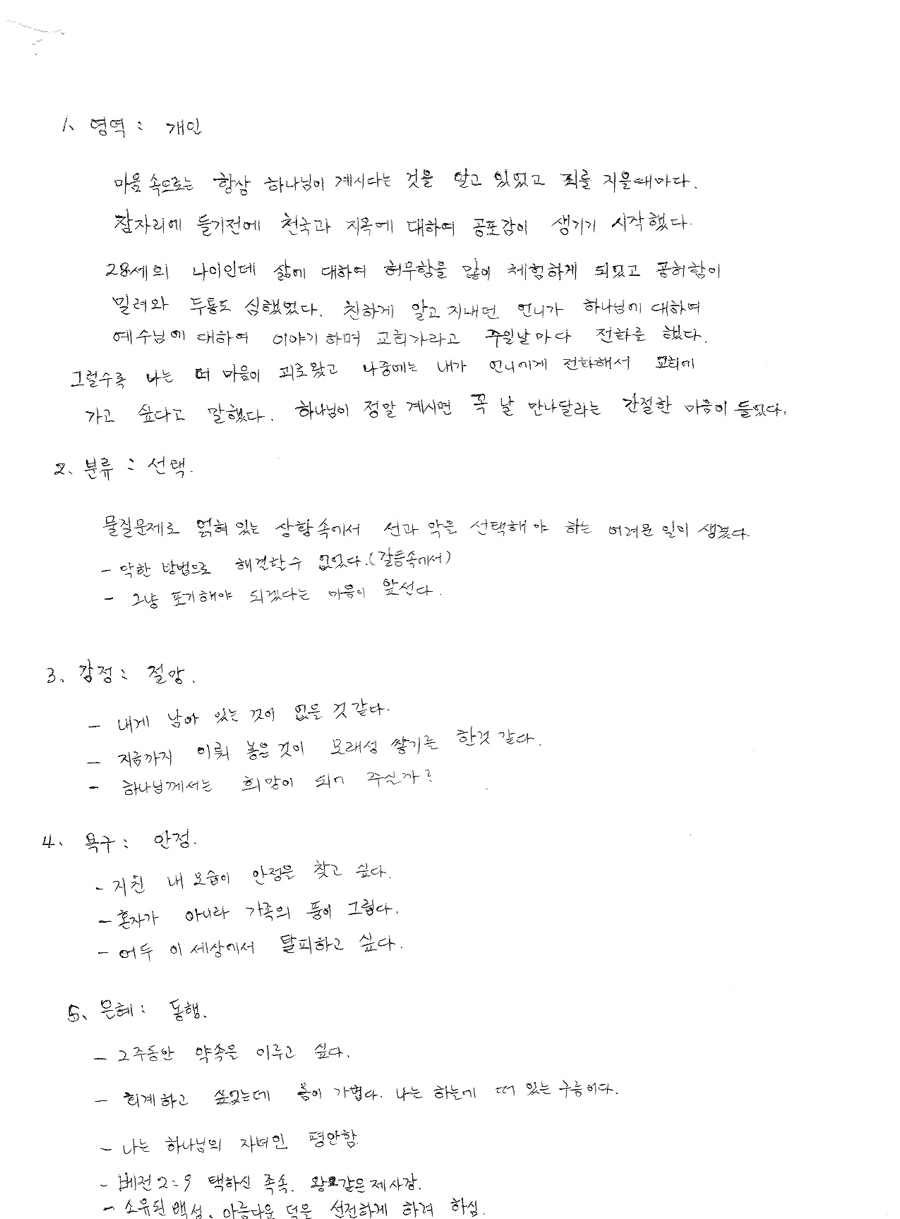 1. 영역 : 개인
마음 속으로는 항상 하나님이 계시다는 것을 알고 있었고 죄를 지을때마다.
잠자리에 들기전에 천국과 지옥에 대하여 공포감이 생기기 시작했다.
28세의 나이인데 삶에 대하여 허무함을 많이 체험하게 되었고 공허함이
밀려와 두통도 심했었다. 친하게 알고 지내던 언니가 하나님에 대하여
예수님에 대하여 이야기하며 교회가라고 주일날마다 전화를 했다.
그럴수록 나는 더 마음이 괴로왔고 나중에는 내가 언니에게 전화해서 교회에
가고 싶다고 말했다. 하나님이 정말 계시면 꼭 날 만나달라는 간절한 마음이 들었다.
2. 분류 : 선택.
물질문제로 얽혀있는 상황속에서 선과 악은 선택해야 하는 어려운 일이 생겼다.
- 악한 방법으로 해결할수 없었다.(갈등속에서)
- 그냥 포기해야 되겠다는 마음이 앞선다.
3. 감정 : 절망.
- 내게 남아 있는 것이 없은 것 같다.
- 지금까지 이뤄 놓은 것이 모래성 쌓기를 한것 같다.
- 하나님께서는 희망이 되어 주신가?
4. 욕구 : 안정.
- 지친 내 모습이 안정은 찾고 싶다.
- 혼자가 아니라 가족의 품이 그립다.
- 어두 이 세상에서 탈피하고 싶다.
5. 은혜 : 동행.
- 2주동안 약속을 이루고 싶다.
- 회계하고 싶었는데 몸이 가볍다. 나는 하늘에 떠 있는 구름이다.
- 나는 하나님의 자녀인 평안함
- 베전2:9 택하신 족속. 왕같은제사장.
- 소유된 백성, 아름다운 덕을 선전하게 하려 하심.